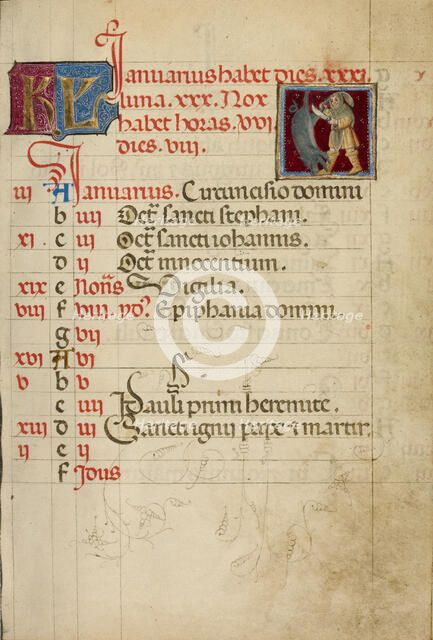 KL Ianuarius habet dies. xxxi.
luna. xxx. Nox
habet horas. xvi.
dies. viii.
iii A Ianuarius. Circuncisio domini
b iiii Oct. sancti stephani.
xi. c iii Oct. sancti iohannis.
d ii Oct. innocentium.
xix e Nonas Vigilia.
viii f viii. yd9. Epiphania domini.
g vii
xvi A vi
v b v
c iiii Pauli primi heremite.
xiii d iii Sancti igini pape 7 martir.
ii e ii
f Idus
Heritage
Heritage